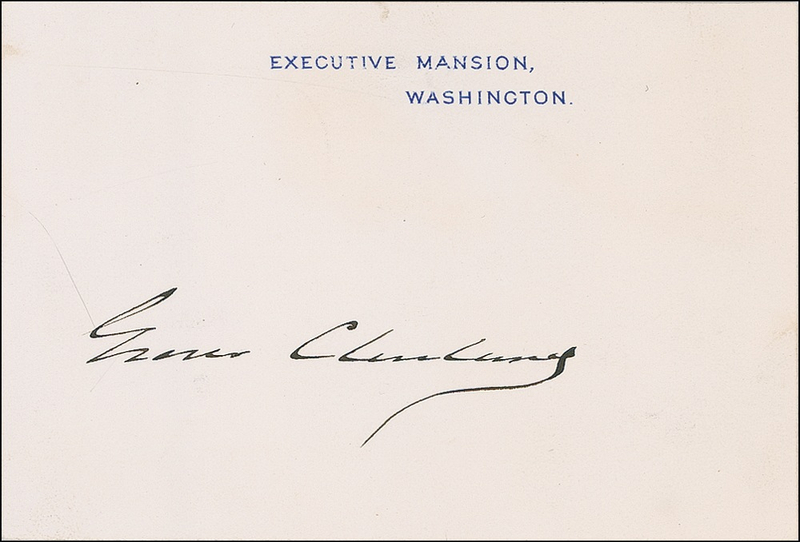 EXECUTIVE MANSION,
WASHINGTON.
Grover Cleveland